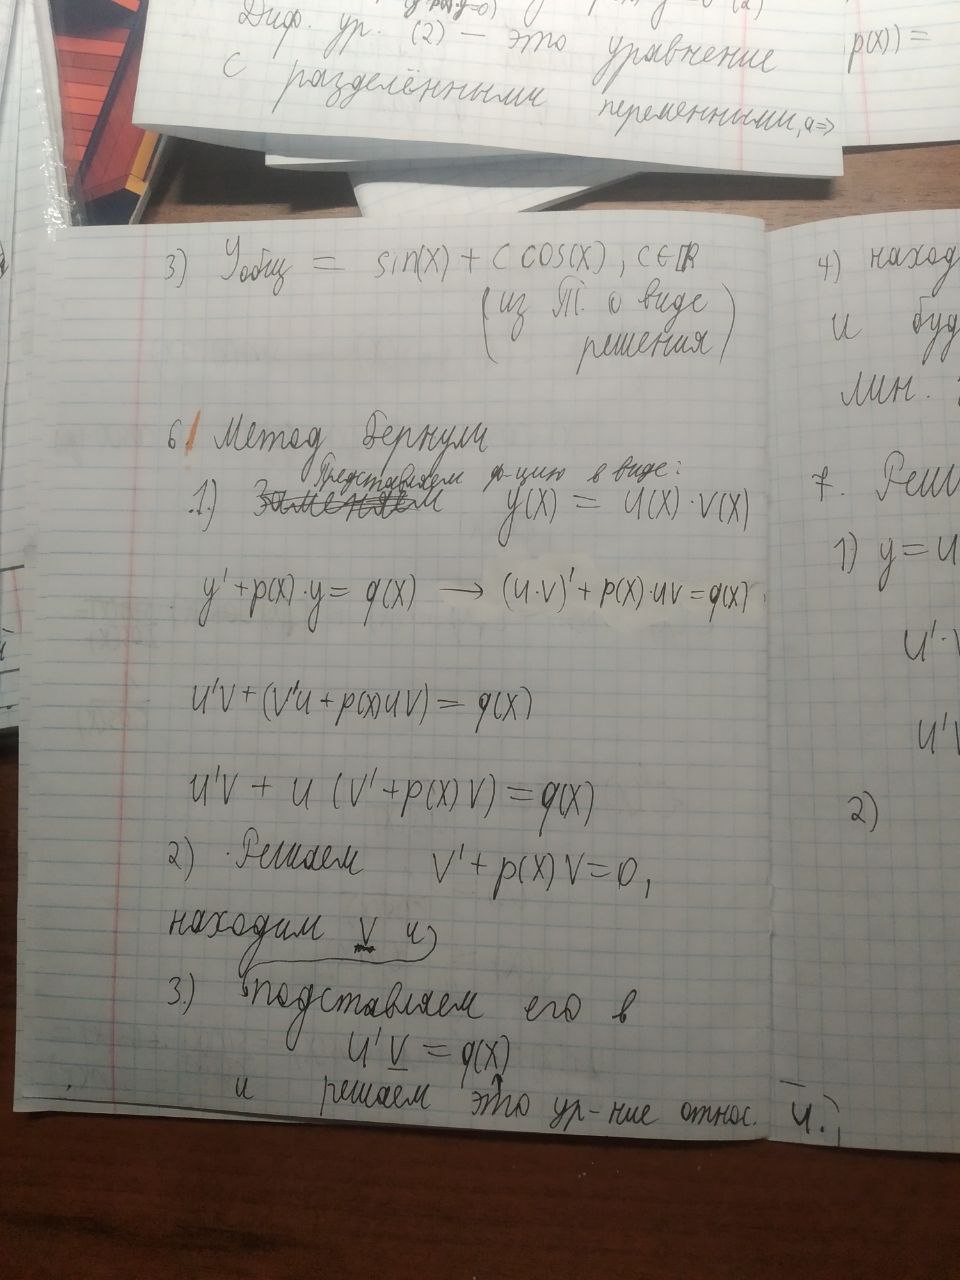 Диф. ур. (2) — это уравнение
с разделёнными переменными, а⇒
p(x)) =
3) Yобщ = sin(x) + C cos(x), C∈ℝ
(из Т. о виде
решения)
6. Метод Бернули
Представляем ф-цию в виде:
1.) y(x) = u(x)·v(x)
y' + p(x)·y = q(x) → (u·v)' + p(x)·uv = q(x)
u'v + (v'u + p(x)uv) = q(x)
u'v + u (v' + p(x)v) = q(x)
2) Решаем v' + p(x)v = 0,
находим v и
3.) подставляем его в
u'v = q(x)
и решаем это ур-ние относ. u.
4) наход
и буд
лин.
7. Реш
1) y = u
u'·v
u'v
2)